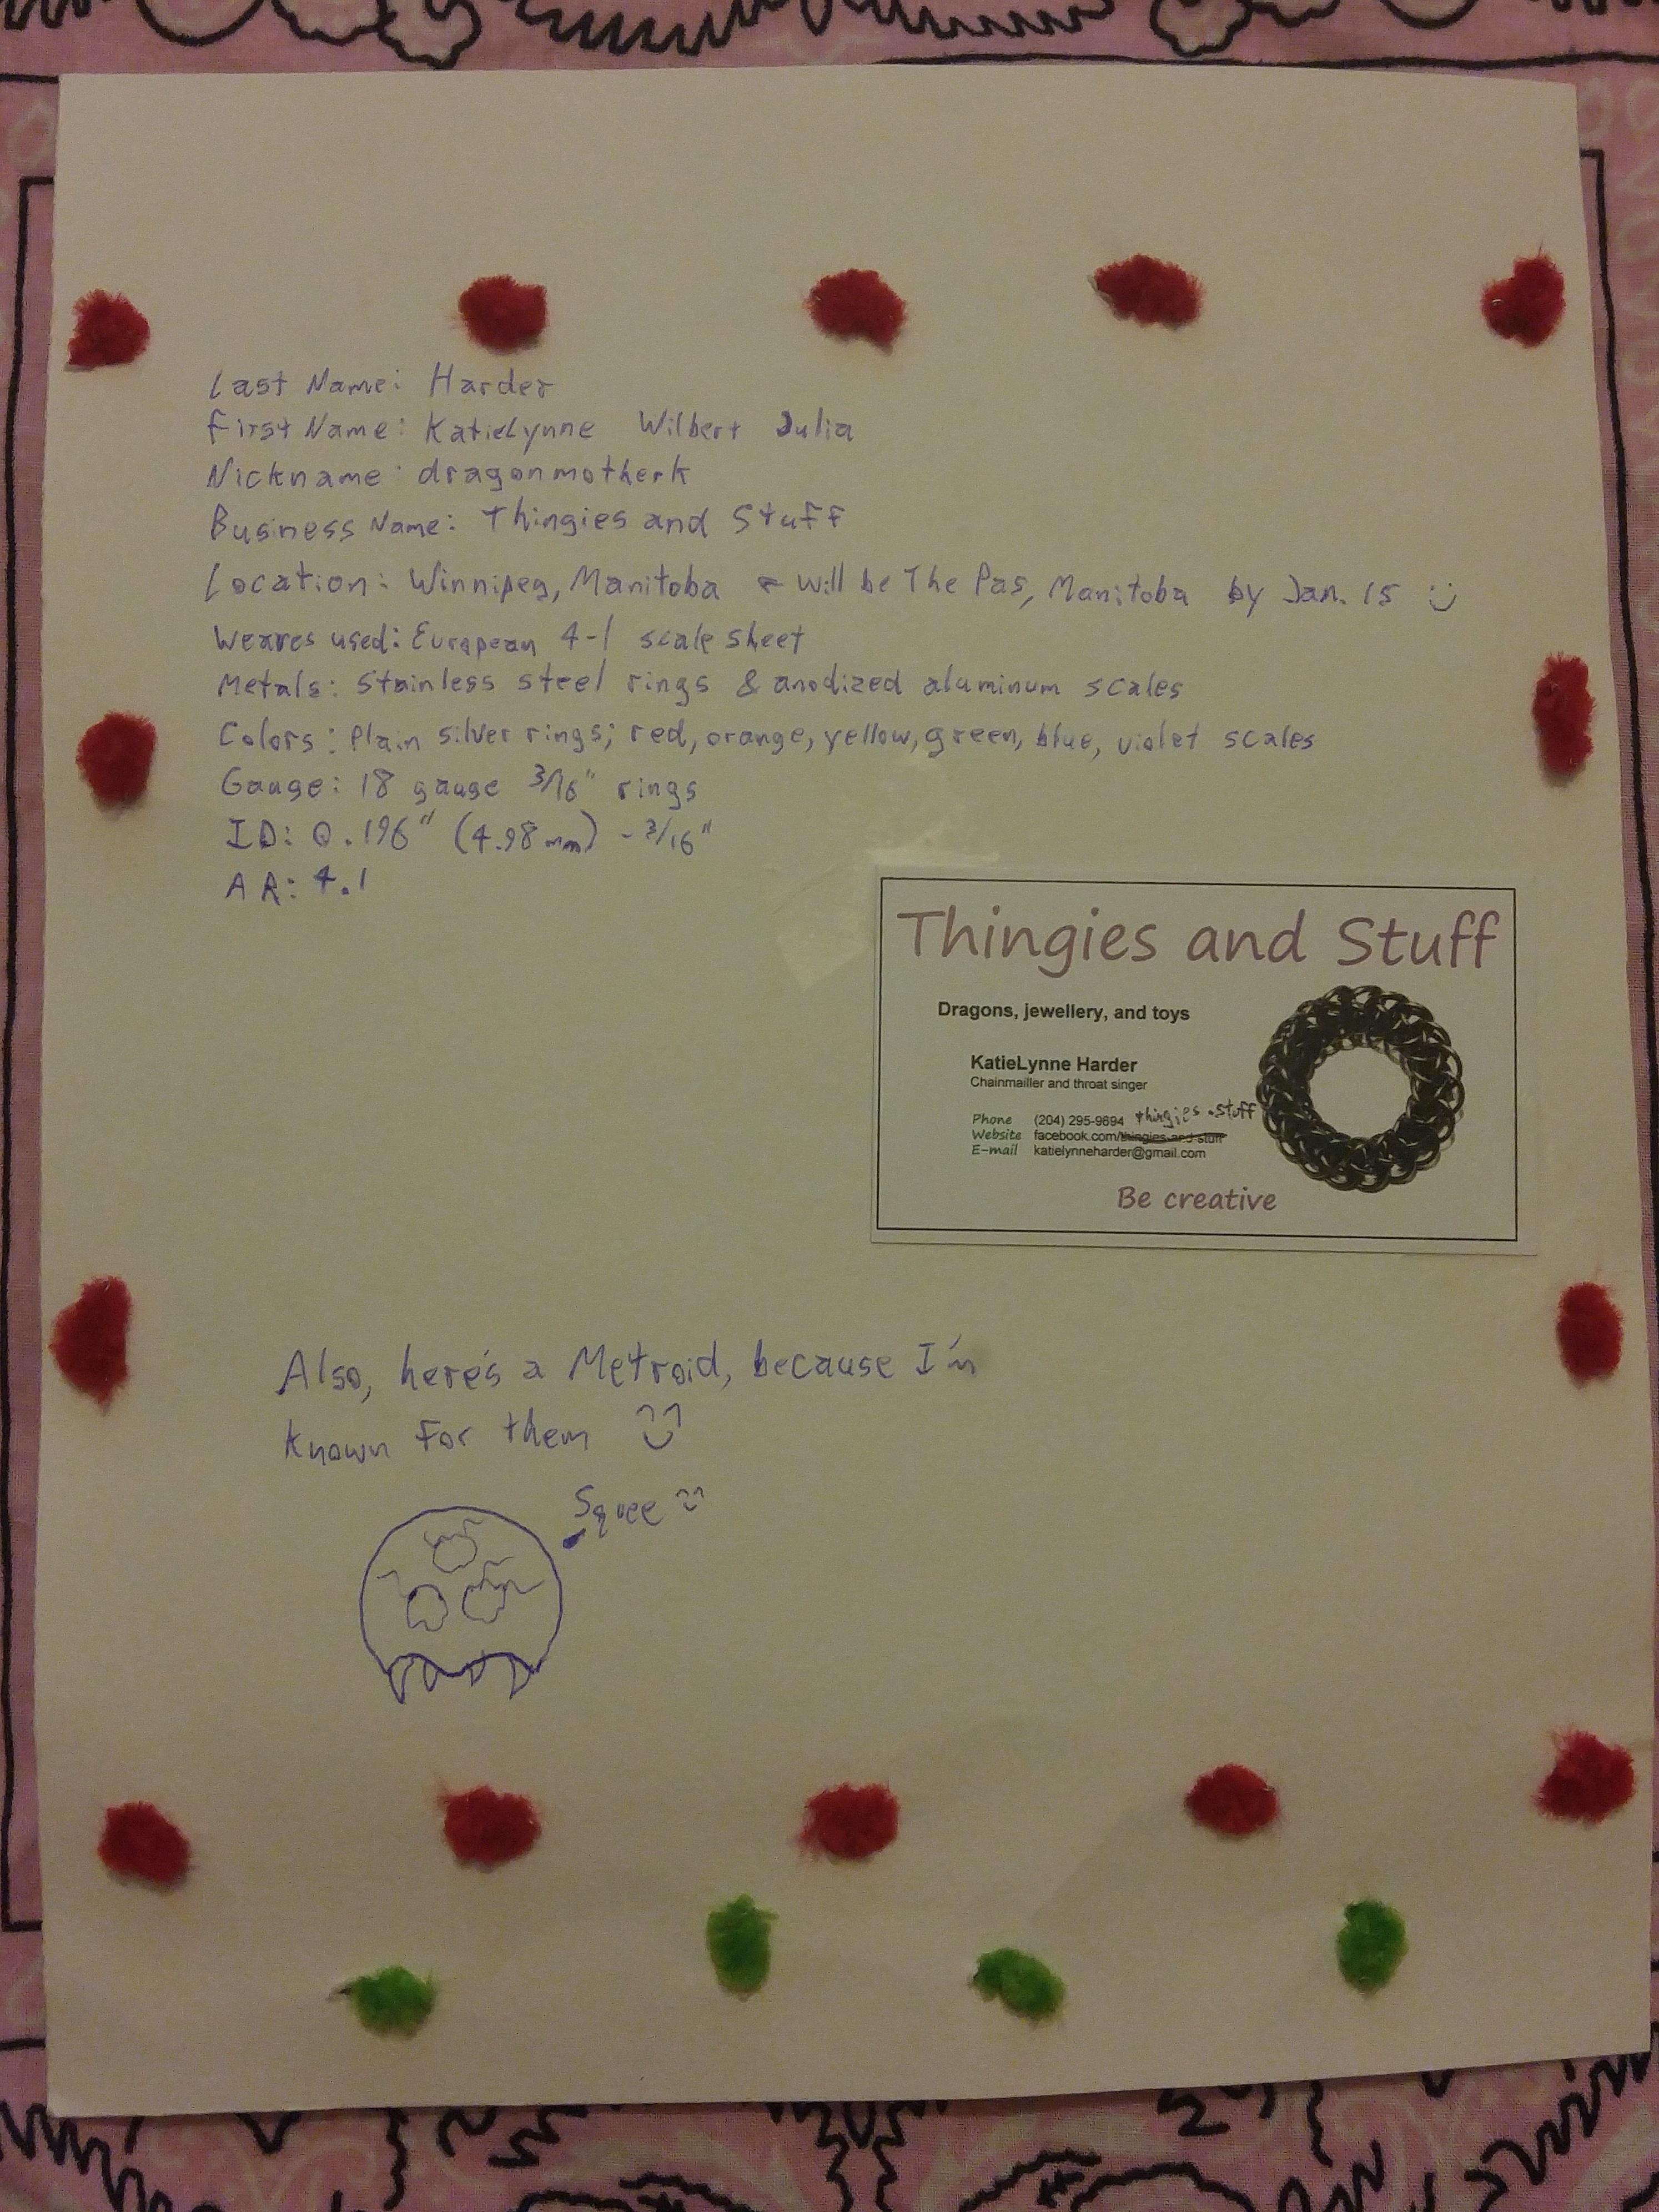 Last Name: Harder
First Name: KatieLynne Wilbert Julia
Nickname: dragonmotherk
Business Name: Thingies and Stuff
Location: Winnipeg, Manitoba ← will be The Pas, Manitoba by Jan. 15 :)
Weaves used: European 4-1 scale sheet
Metals: Stainless steel rings & anodized aluminum scales
Colors: Plain silver rings; red, orange, yellow, green, blue, violet scales
Gauge: 18 gauge 3/16" rings
ID: 0.196" (4.98mm) - 3/16"
AR: 4.1
Thingies and Stuff
Dragons, jewellery, and toys
KatieLynne Harder
Chainmailler and throat singer
Phone (204) 295-9694 thingies.stuff
Website facebook.com/thingies-and-stuff
E-mail katielynneharder@gmail.com
Be creative
Also, here's a Metroid, because I'm
known for them
Squee